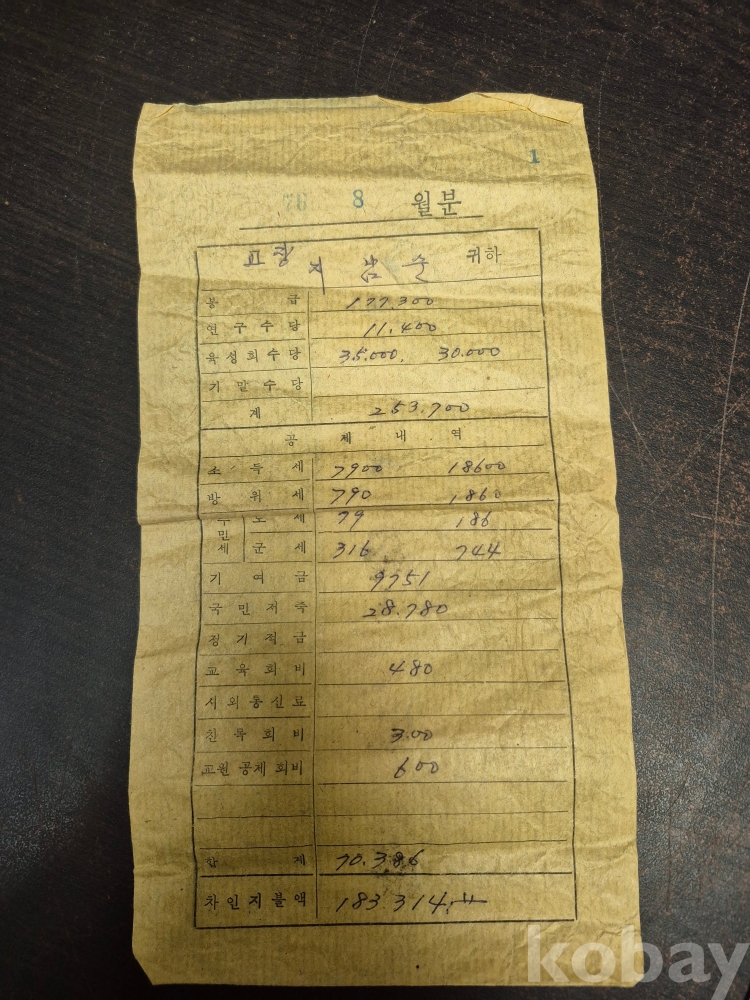 1
76 8 월분
교장 지 남 순 귀하
봉급 177.300
연구수당 11.400
육성회수당 35.000. 30.000
기말수당
계 253.700
공제내역
소득세 7900 18600
방위세 790 1860
주민세 도세 79 186
군세 316 744
기여금 9751
국민저축 28.780
정기적금
교육회비 480
시외통신료
친목회비 3.00
교원공제회비 600
합계 70.386
차인지불액 183.314.
kobay